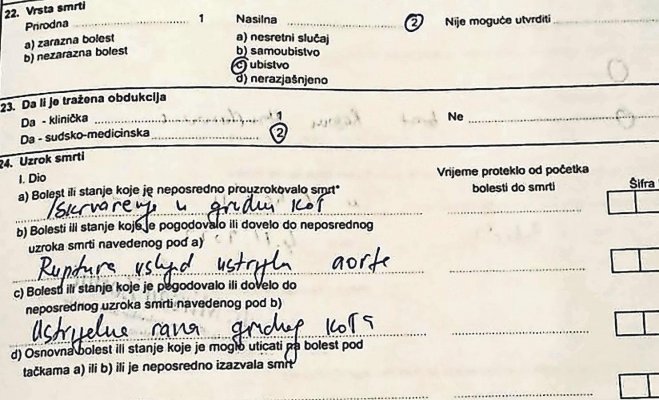 22. Vrsta smrti
Prirodna 1 Nasilna 2 Nije moguće utvrditi
a) zarazna bolest a) nesretni slučaj
b) nezarazna bolest b) samoubistvo
c) ubistvo
d) nerazjašnjeno
23. Da li je tražena obdukcija
Da - klinička 1 Ne
Da - sudsko-medicinska 2
24. Uzrok smrti
I. Dio Vrijeme proteklo od početka
a) Bolest ili stanje koje je neposredno prouzrokovalo smrt* bolesti do smrti Šifra
Iskrvarenje u grudni koš
b) Bolesti ili stanje koje je pogodovalo ili dovelo do neposrednog
uzroka smrti navedenog pod a)
Ruptura uslijed ustrijela aorte
c) Bolesti ili stanje koje je pogodovalo ili dovelo do
neposrednog uzroka smrti navedenog pod b)
Ustrijelna rana grudnog koša
d) Osnovna bolest ili stanje koje je moglo uticati na bolest pod
tačkama a) ili b) ili je neposredno izazvala smrt